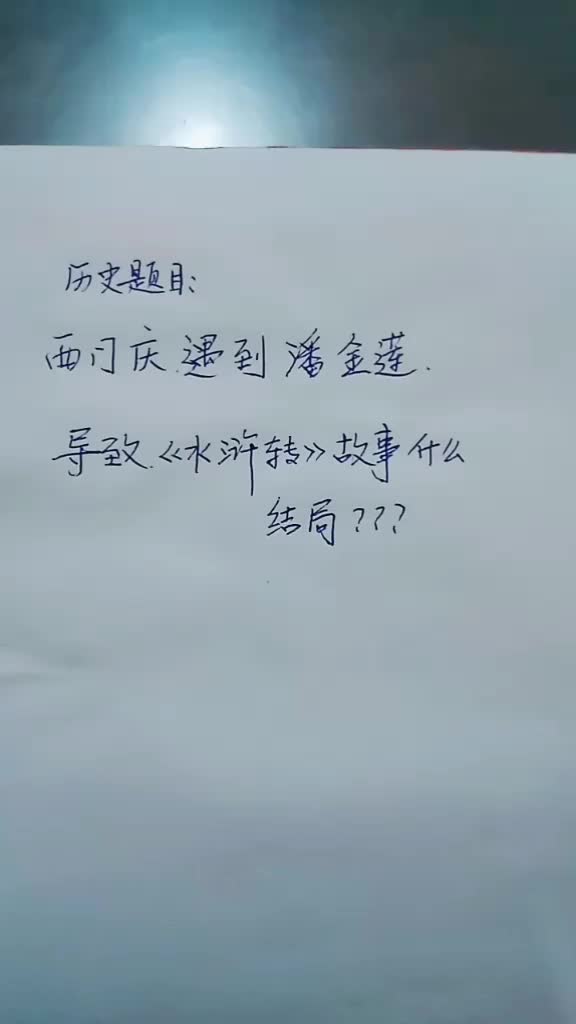 历史题目:
西门庆.遇到潘金莲.
导致.《水浒转》故事什么
结局???